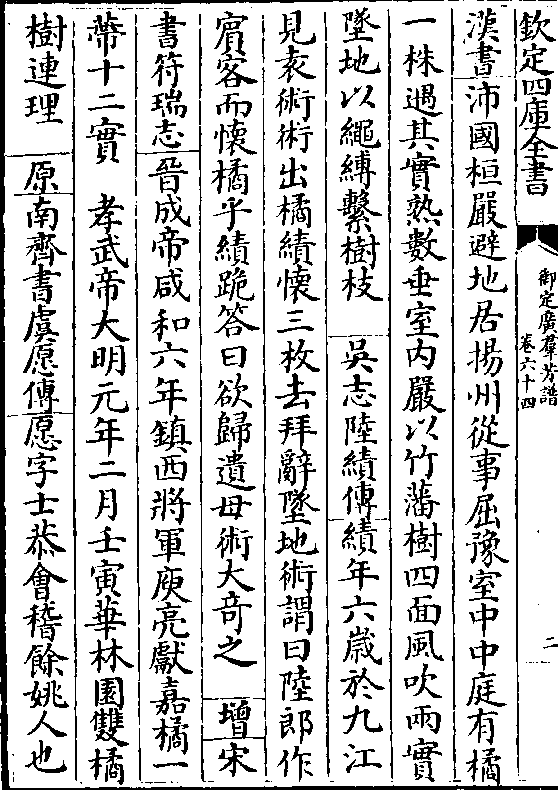 欽定四庫全書
御定廣羣芳譜
卷六十四
二
漢書沛國桓嚴避地居揚州從事屈豫室中中庭有橘
一株遇其實熟數垂室内嚴以竹藩樹四面風吹兩實
墜地以繩縛繫樹枝 吳志陸績傳績年六歲於九江
見袁術術出橘績懷三枚去拜辭墜地術謂曰陸郎作
賔客而懷橘乎績跪答曰欲歸遺母術大奇之 增宋
書符瑞志晉成帝咸和六年鎮西將軍庾亮獻嘉橘一
蔕十二實 孝武帝大明元年二月壬寅華林園雙橘
樹連理 原南齊書虞愿傳愿字士恭會稽餘姚人也